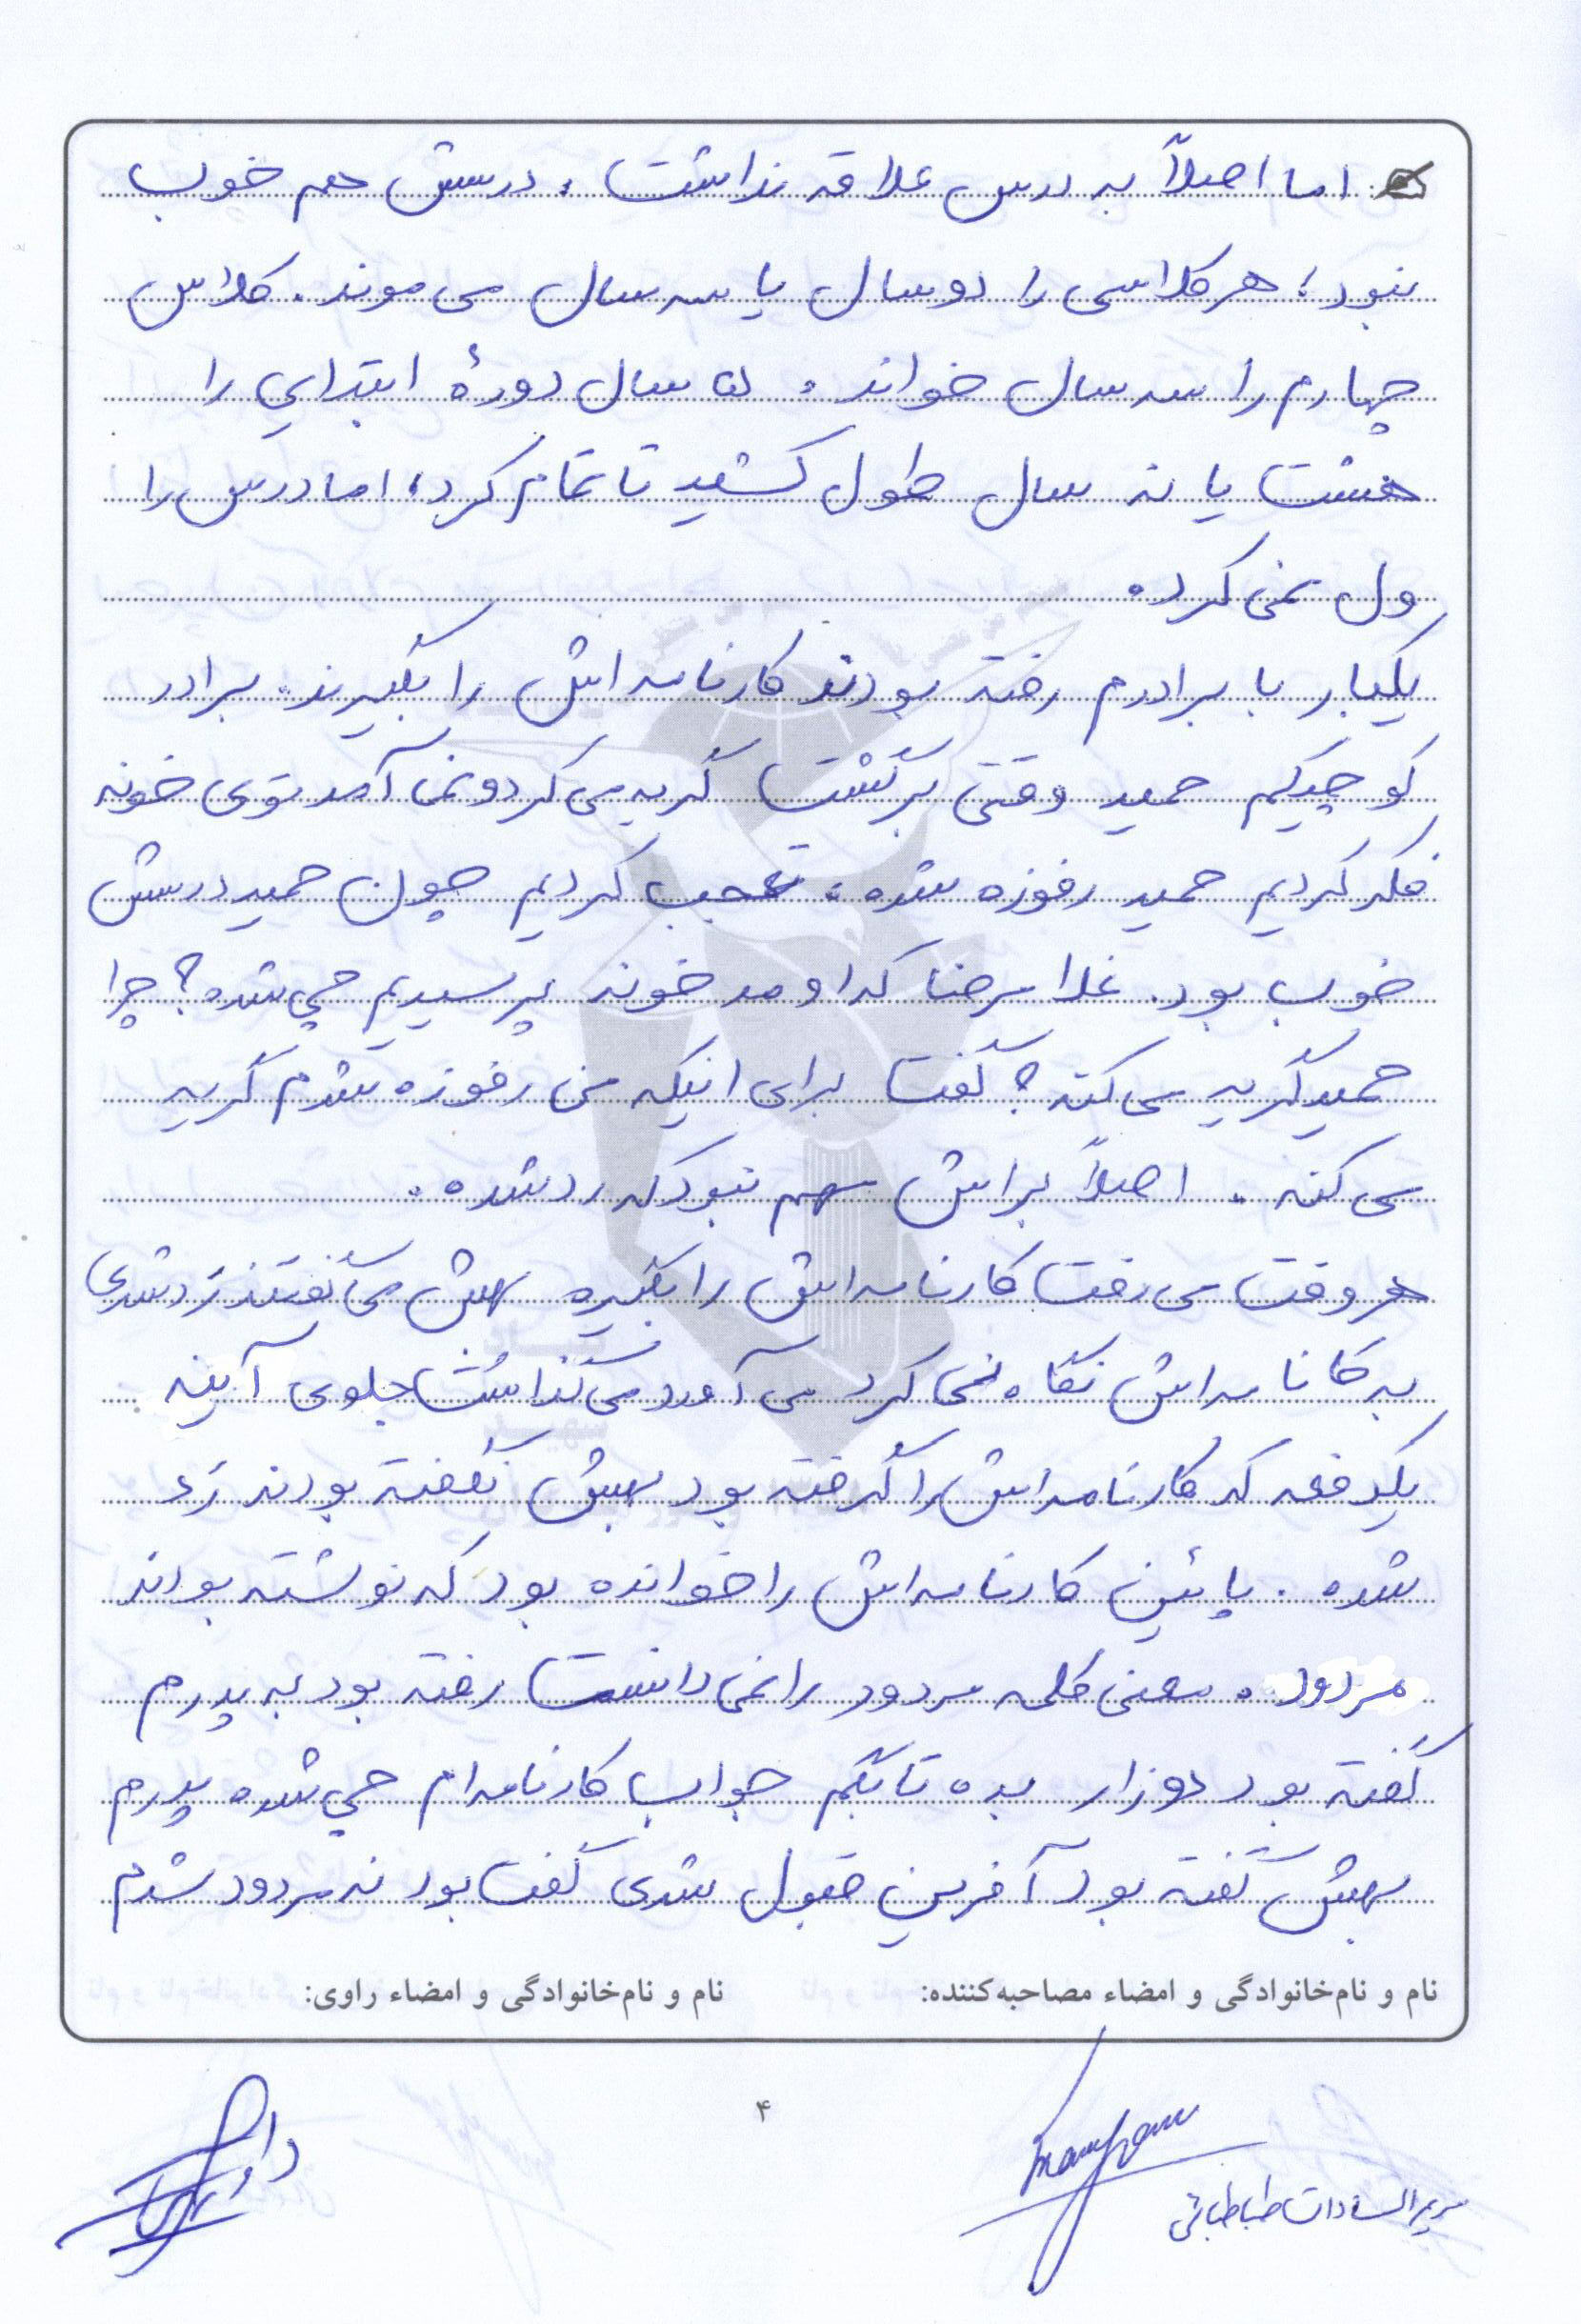 اما اصلاً به درس علاقه نداشت . درسش هم خوب
نبود؛ هر کلاسی را دو سال یا سه سال می موند . کلاس
چهارم را سه سال خواند . ۵ سال دورهٔ ابتدایی را
هشت یا نه سال طول کشید تا تمام کرد؛ اما درس را
ول نمی کرد.
یکبار با برادرم رفته بودند کارنامه اش را بگیرند. برادر
کوچیکم حمید وقتی برگشت گریه می کرد و نمی آمد توی خونه
فکر کردیم حمید رفوزه شده . تعجب کردیم چون حمید درسش
خوب بود. غلامرضا که اومد خونه پرسیدیم چی شده؟ چرا
حمید گریه می کنه؟ گفت برای اینکه من رفوزه شدم گریه
می کنه . اصلاً براش مهم نبود که رد شده .
هر وقت می رفت کارنامه اش را بگیره بهش می گفتند رَد شدی
به کانامه اش نگاه نمی کرد می آمد می گذاشت جلوی آینه
یکدفعه که کارنامه اش را گرفته بود بهش نگفته بودند رَد
شده . پائین کارنامه اش را خوانده بود که نوشته بودند
مردود . معنی کلمه مردود را نمی دانست رفته بود به پدرم
گفته بود دوزار بده تا بگم جواب کارنامه ام چی شده پدرم
بهش گفته بود آفرین قبول شدی گفت بود نه مردود شدم
نام و نام‌خانوادگی و امضاء مصاحبه‌کننده: نام و نام‌خانوادگی و امضاء راوی:
۴
مریم السادات طباطبائی